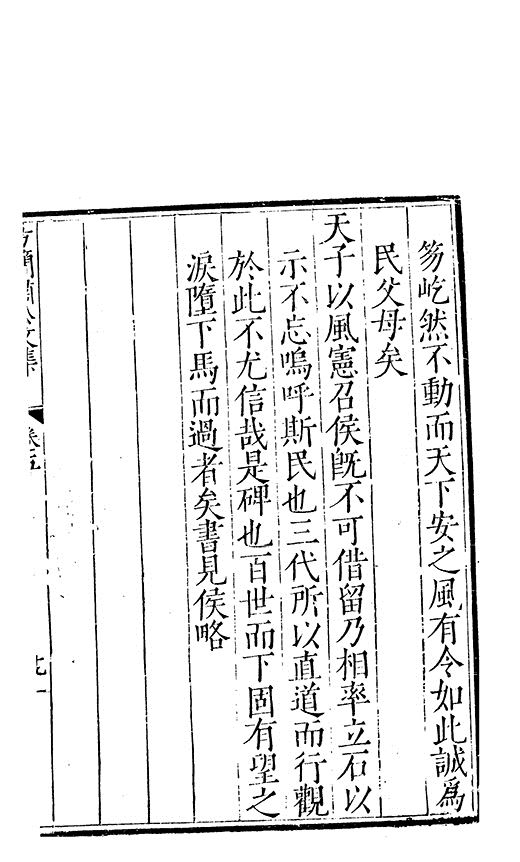 笏屹然不動而天下安之風有令如此誠爲
民父母矣
天子以風憲召侯旣不可借留乃相率立石以
示不忘嗚呼斯民也三代所以直道而行觀
於此不尤信哉是碑也百世而下固有望之
淚墮下馬而過者矣書見侯略
卷五